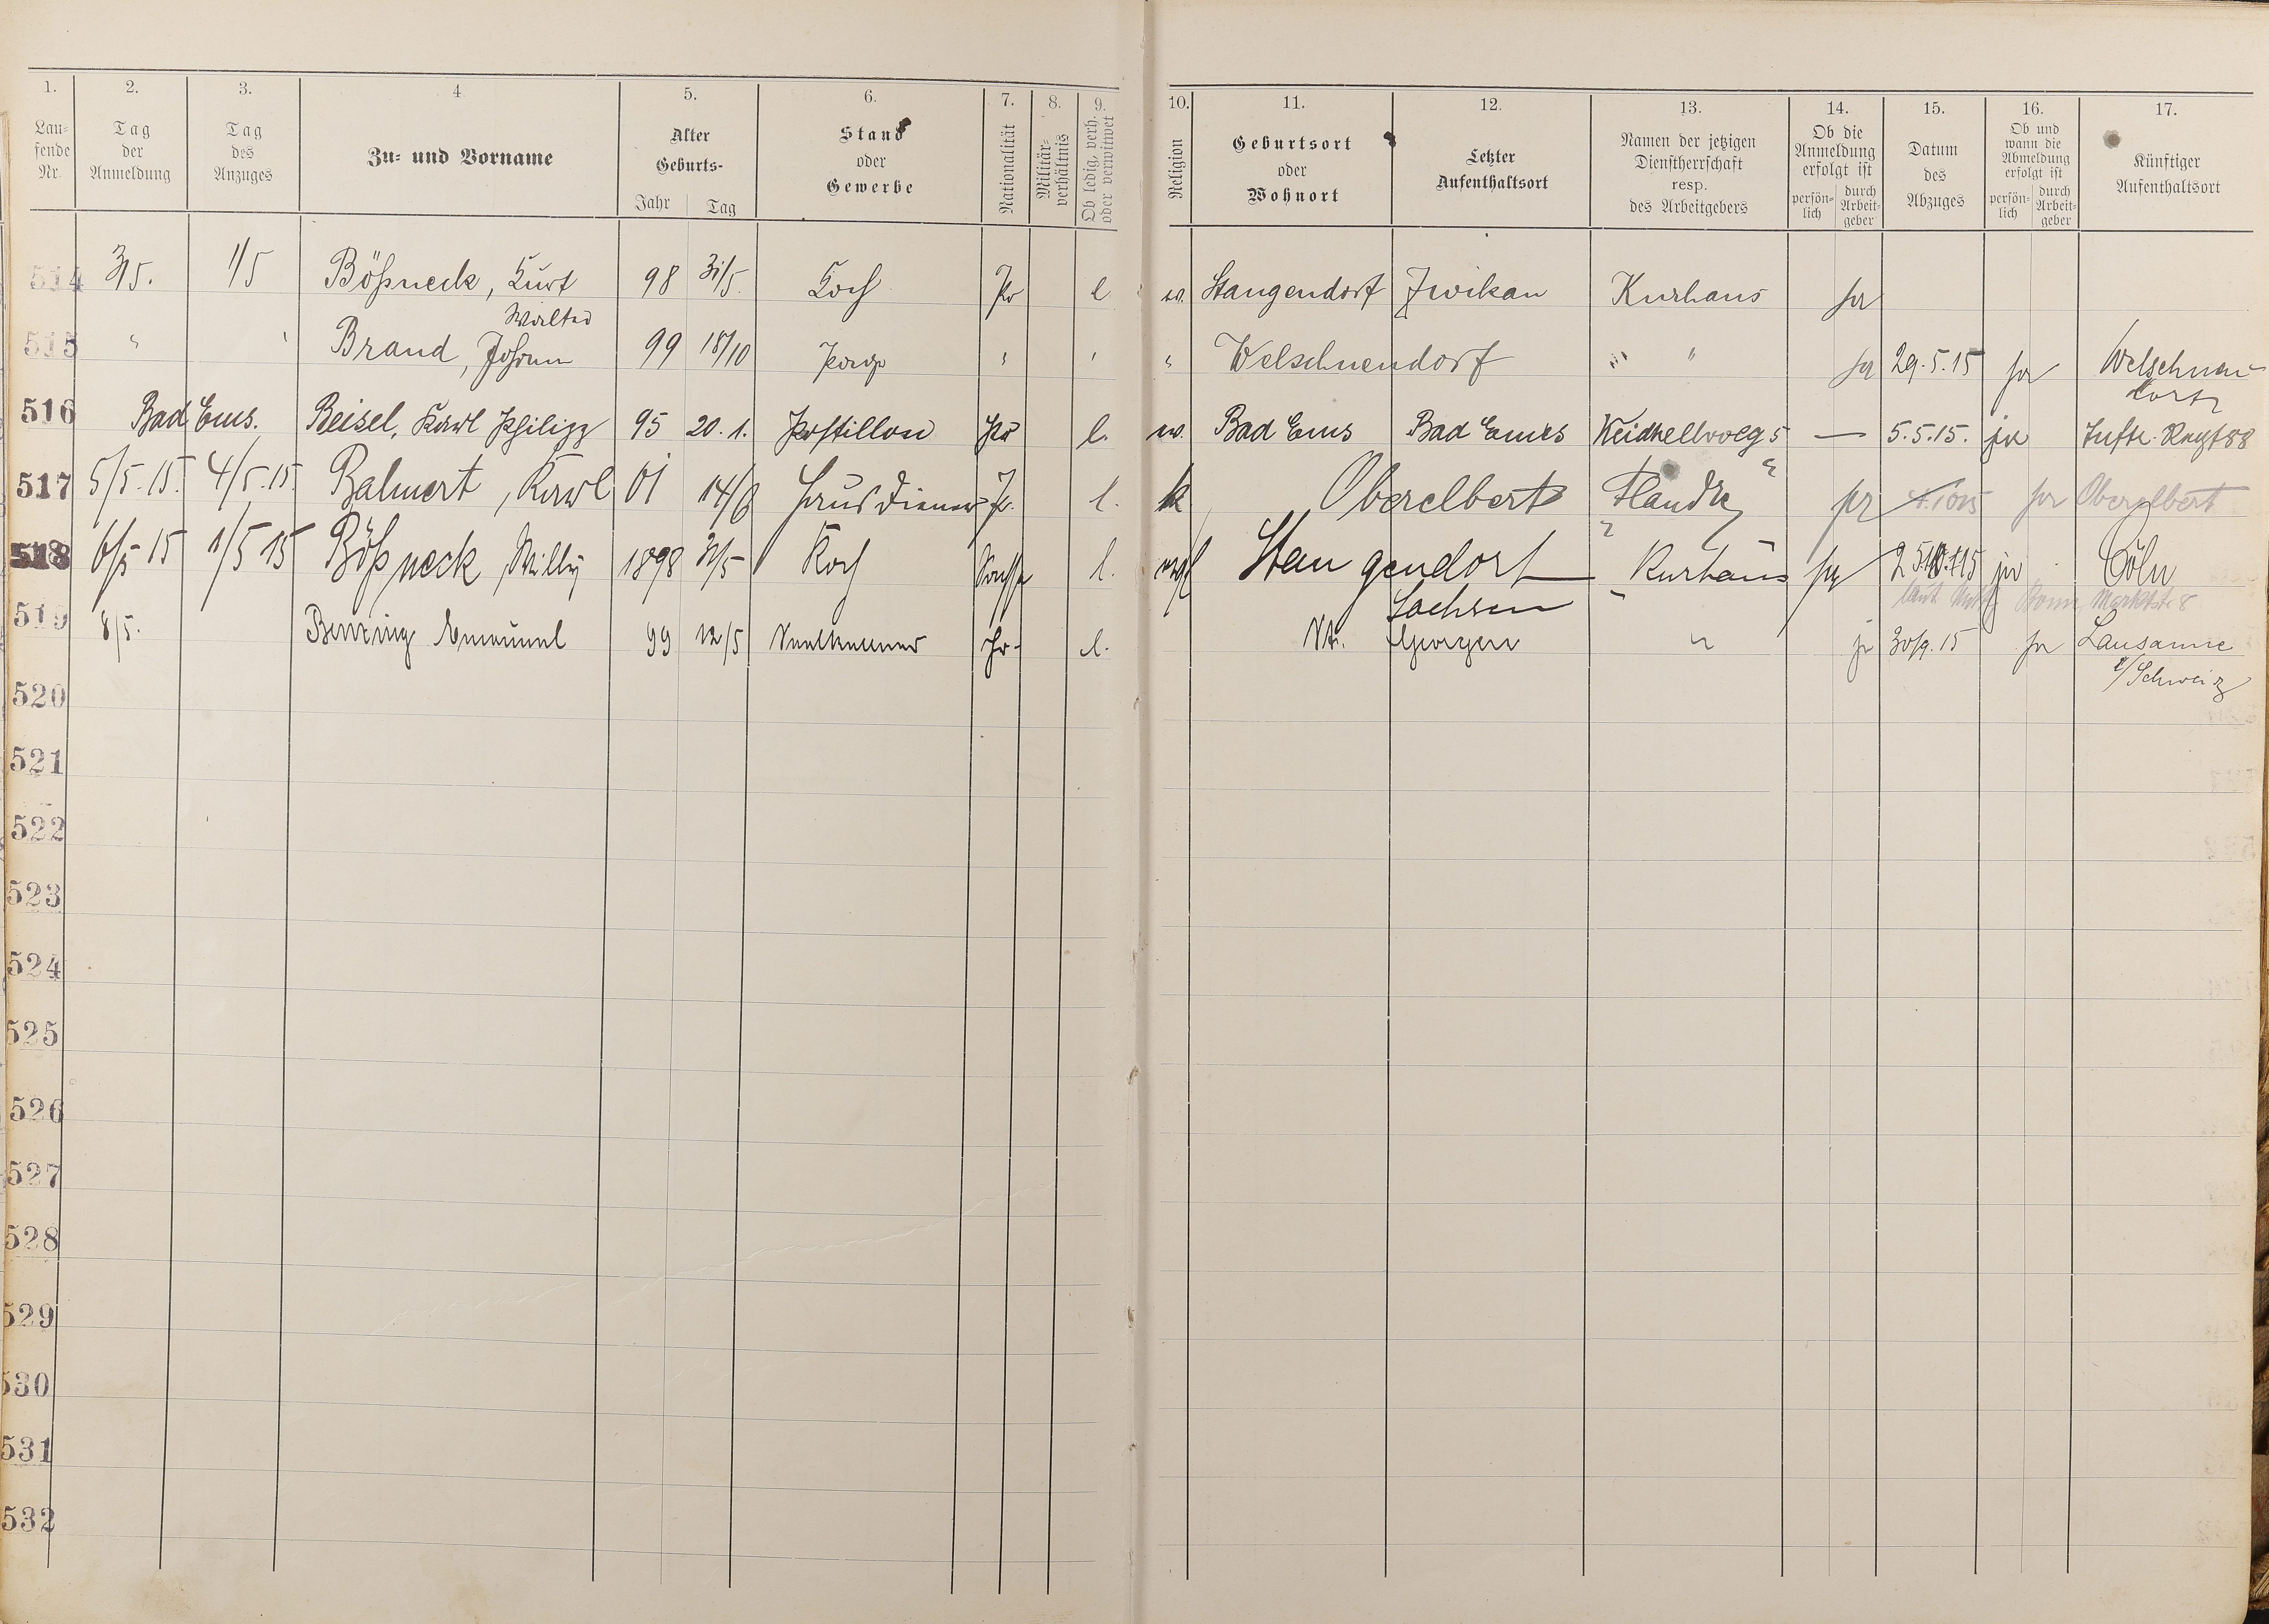 1. 2. 3. 4. 5. 6. 7. 8. 9. 10. 11. 12. 13. 14. 15. 16. 17.
Lau-
fende
Nr.
Tag
der
Anmeldung
Tag
des
Anzuges
Zu- und Vorname
Alter
Geburts-
Jahr Tag
Stand
oder
Gewerbe
Nationalität
Militär-
verhältnis
Ob ledig, verh.
oder verwitwet
Religion
Geburtsort
oder
Wohnort
Letzter
Aufenthaltsort
Namen der jetzigen
Dienstherrschaft
resp.
des Arbeitgebers
Ob die
Anmeldung
erfolgt ist
persön-
lich
durch
Arbeit-
geber
Datum
des
Abzuges
Ob und
wann die
Abmeldung
erfolgt ist
persön-
lich
durch
Arbeit-
geber
Künftiger
Aufenthaltsort
514 3/5. 1/5 Bößneck, Kurt 98 31/5. Koch Pr l Stangendorf Zwikau Kurhaus ja
Walter
515 " Brand, Johann 99 18/10 Page " " " Welschnendorf " " ja 29.5.15 ja Welschnen-
dorf
516 Bad Ems. Beisel, Karl Philipp 95 20.1. Postillon Pr l. ev. Bad Ems Bad Ems 5 — 5.5.15. ja 88
517 5/5.15. 4/5.15. Balmert, Karl 01 14/6 Hausdiener Pr. l. k Oberelbert Flandre ja ja Oberelbert
518 6/5 15 1/5 15 Bößneck, Willy 1898 31/5 Koch l. Stangendorf Kurhaus ja ja Cöln
Sachsen laut Marktstr 8
519 8/5. Benzing Emanuel 99 12/5 Pr. l. St. Georgen " ja 30/9.15 ja Lausanne
i/Schweiz
520
521
522
523
524
525
526
527
528
529
530
531
532